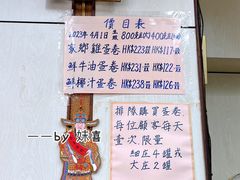 價目表
2023年4月1日 800克 400克
家鄉雞蛋卷 HK$223 HK$117
鮮牛油蛋卷 HK$231 HK$122
鮮椰汁蛋卷 HK$238 HK$126
排隊購買蛋卷
每位顧客每天
限量
2罐
——by 妹喜